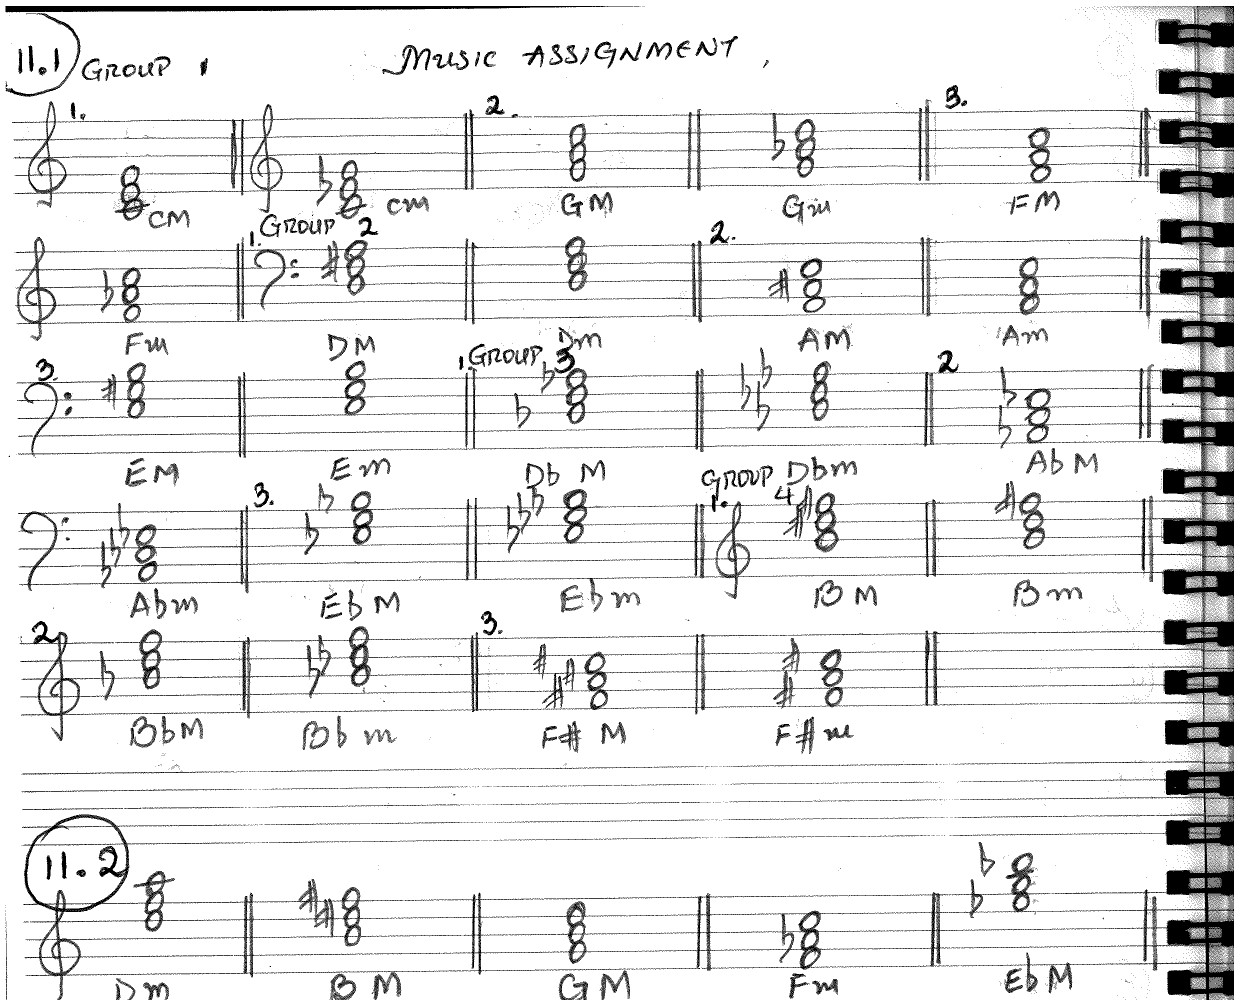 11.1 GROUP 1 MUSIC ASSIGNMENT,
1. 2. 3.
CM cm GM Gm FM
1. GROUP 2 2.
Fm DM Dm AM Am
3. 1. GROUP 3 2
EM Em Db M Dbm AbM
3. GROUP 4 1.
Abm EbM Ebm BM Bm
2 3.
BbM Bbm F# M F#m
11.2
Dm BM GM Fm EbM